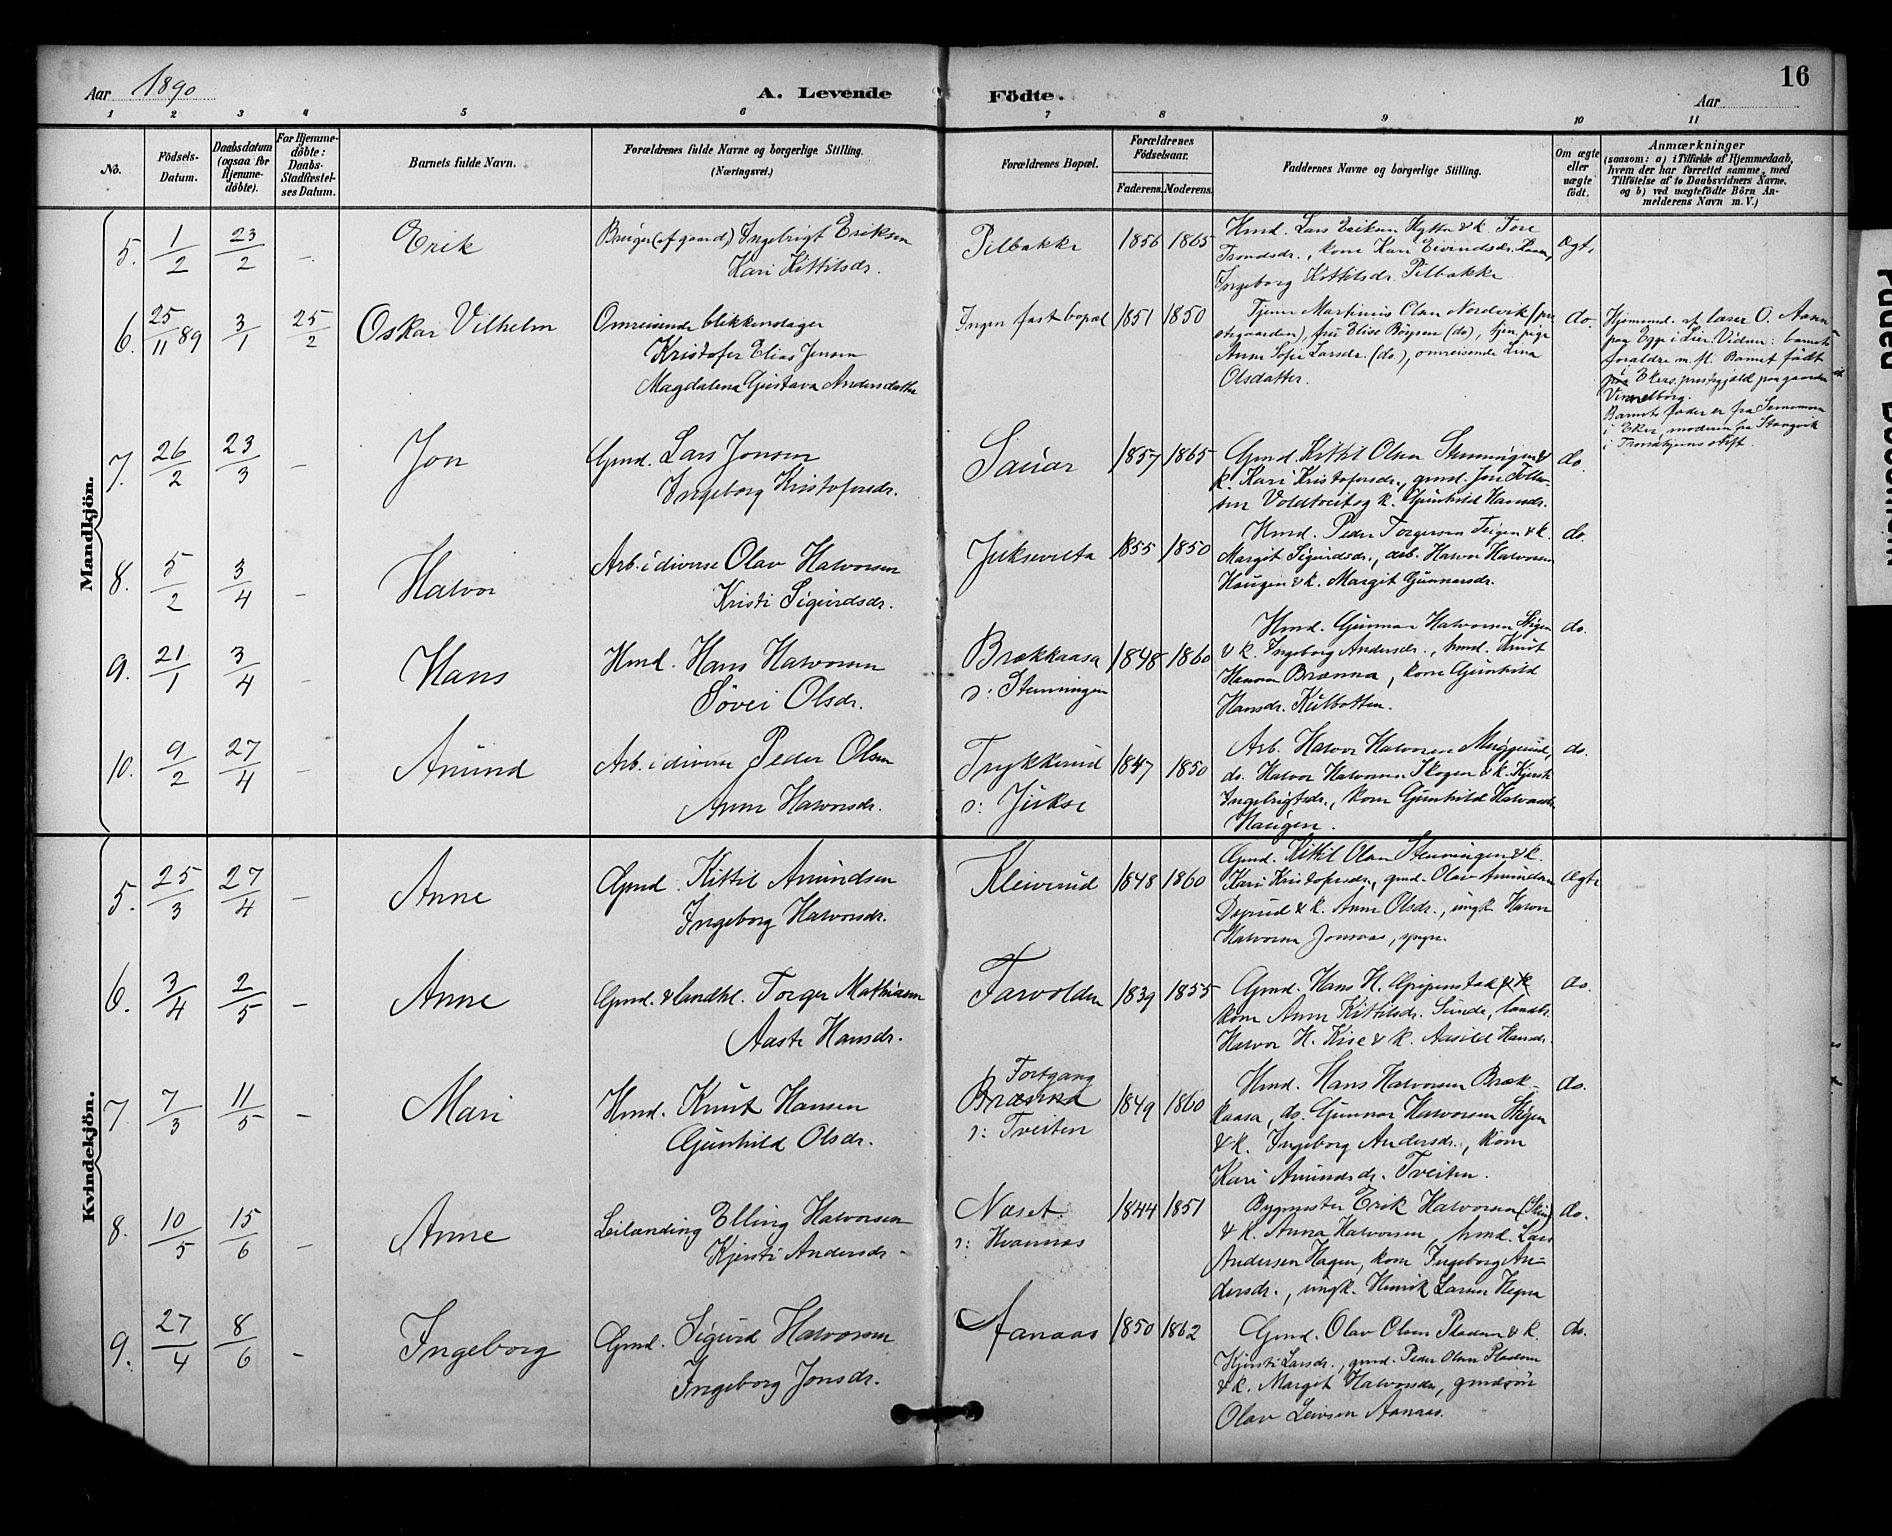 16
Aar 1890
A. Levende
Födte.
Aar
1 2 3 4 5 6 7 8 9 10 11
No.
Födsels-
Datum.
Daabsdatum
(ogsaa for
Hjemme-
døbte).
For Hjemme-
døbte:
Daabs-
Stadfæstel-
ses Datum.
Barnets fulde Navn.
Forældrenes fulde Navne og borgerlige Stilling.
(Næringsvei.)
Forældrenes Bopæl.
Forældrenes
Födselsaar.
Faderens. Moderens.
Faddernes Navne og borgerlige Stilling.
Om ægte
eller
uægte
födt.
Anmærkninger
(saasom: a) i Tilfælde af Hjemmedaab,
hvem der har forrettet samme, med
Tilföielse af to Daabsvidners Navne,
og b) ved uægtefödte Börn An-
melderens Navn m. V.)
Mandkjön.
5. 1/2 23/2 - Erik
Bruger (af gaard) Ingebrigt Eriksen
Kari Kittilsdr.
Pilbakke 1856 1865
Hmd. Lars Eriksen Hytta & k. Tore
Trondsdr., kone Kari Eivindsdr.
Ingeborg Kittilsdr. Pilbakke
Ægt.
6. 25/11 89 3/1 25/2 Oskar Vilhelm
Omreisende blikkenslager
Kristofer Elias Jensen
Magdalena Gustava Andersdatter
Ingen fast bopæl 1851 1850
Tjener Martinius Olsen Nordvik (pre
stegaarden), fru Elise Böysen (do), tjen. pige
Anne Sofie Larsdr. (do.), omreisende Lina
Olsdatter.
do.
Hjemmed. af lærer O. Aasn
paa Egge i Lier. Vidner: barnets
forældre m. fl. Barnet födt
paa Ekers prestegjæld paa gaarden
Vinnelborg.
Barnets fader er fra
i Eker, moderen fra Stangvik
i Trondhjems stift.
7. 26/2 23/3 - Jon
Gmd. Lars Jonsen
Ingeborg Kristofersdr.
Sauar 1857 1865
Gmd. Kittil Olsen Stenningen &
k. Kari Kristofersdr., gmd. Jon Tolle-
sen Voldtveit og k. Gunhild Hansdr.
do.
8. 5/2 3/4 - Halvor
Arb. i diverse Olav Halvorsen
Kristi Sigurdsdr.
Juksevelta 1855 1850
Hmd. Peder Torgersen Teigen & k.
Margit Sigurdsdr., arb. Halvor Halvorsen
Haugen & k. Margit Gunnersdr.
do.
9. 21/1 3/4 - Hans
Hmd. Hans Halvorsen
Søvei Olsdr.
Brækkaasa
ɔ: Stenningen
1848 1860
Hmd. Gunnar Halvorsen Stigen
& k. Ingeborg Andersdr., hmd. Knut
Hansen Brænna, kone Gunhild
Hansdr. Kulbotten.
do.
10. 9/2 27/4 - Amund
Arb. i diverse Peder Olsen
Anne Halvorsdr.
Trykkerud
ɔ: Jukse
1847 1850
Arb. Halvor Halvorsen Muggerud,
do. Halvor Halvorsen Skogen & k. Kjersti
Ingebrigtsdr., kone Gunhild Halvorsdr.
Haugen.
do.
Kvindekjön.
5. 25/3 27/4 - Anne
Gmd. Kittil Amundsen
Ingeborg Halvorsdr.
Kleivrud 1848 1860
Gmd. Kittil Olsen Stenningen & k.
Kari Kristofersdr., gmd. Olav Amundsen
Dyrud & k. Anne Olsdr., ungk. Halvor
Halvorsen Jonsaas, yngre.
Ægte
6. 3/4 2/5 - Anne
Gmd. & landhl. Torger Mathisen
Aaste Hansdr.
Farvolden 1839 1855
Gmd. Hans H. Gripenstad & k
kone Anne Kittilsdr. Sunde, landh.
Halvor H. Kise & k. Aasild Hansdr.
do.
7. 7/3 11/5 - Mari
Hmd. Knut Hansen
Gunhild Olsdr.
Fortgang
Brænna
ɔ: Tveiten
1849 1860
Hmd. Hans Halvorsen Bræk-
kaasa, do. Gunnar Halvorsen Stigen
& k. Ingeborg Andersdr., kone
Kari Amundsdr. Tveiten.
do.
8. 10/5 15/6 - Anne
Leilænding Elling Halvorsen
Kjersti Andersdr.
Næset
ɔ: Kvannaas
1844 1851
Bygmester Erik Halvorsen (Skien)
& k. Anna Halvorsen, hmd. Lars
Andersen Hagen, kone Ingeborg An-
dersdr., ungk. Henrik Larsen Hegna
do.
9. 27/4 8/6 - Ingeborg
Gmd. Sigurd Halvorsen
Ingeborg Jonsdr.
Aanaas 1850 1862
Gmd. Olav Olsen Pladsen & k.
Kjersti Larsdr., gmd. Peder Olsen Pladsen
& k. Margit Halvorsdr., gmdsön
Olav Leivsen Aanaas.
do.